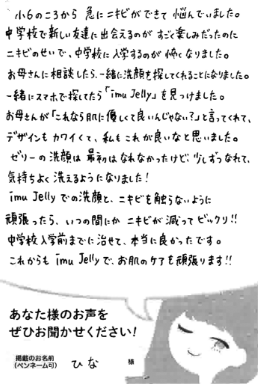 小6のころから 急にニキビができて 悩んでいました。
中学校で新しい友達に出会えるのが すごく楽しみだったのに
ニキビのせいで、中学校に入学するのが 怖くなりました。
お母さんに相談したら、一緒に洗顔を探してくれることになりました。
一緒にスマホで探してたら「imu Jelly」を見つけました。
お母さんが「これなら肌に優しくて良いんじゃない？」と言ってくれて、
デザインも カワイくて、私もこれが良いなと思いました。
ゼリーの洗顔は 最初はなれなかったけど、少しずつなれて、
気持ちよく 洗えるようになりました!
imu Jellyでの洗顔と、ニキビを触らないように
頑張ったら、いつの間にか ニキビが減ってビックリ!!
中学校入学前までに治せて、本当に良かったです。
これからも imu Jellyで、お肌のケアを頑張ります!!
あなた様のお声を
ぜひお聞かせください!
掲載のお名前
(ペンネーム可)
ひな 様